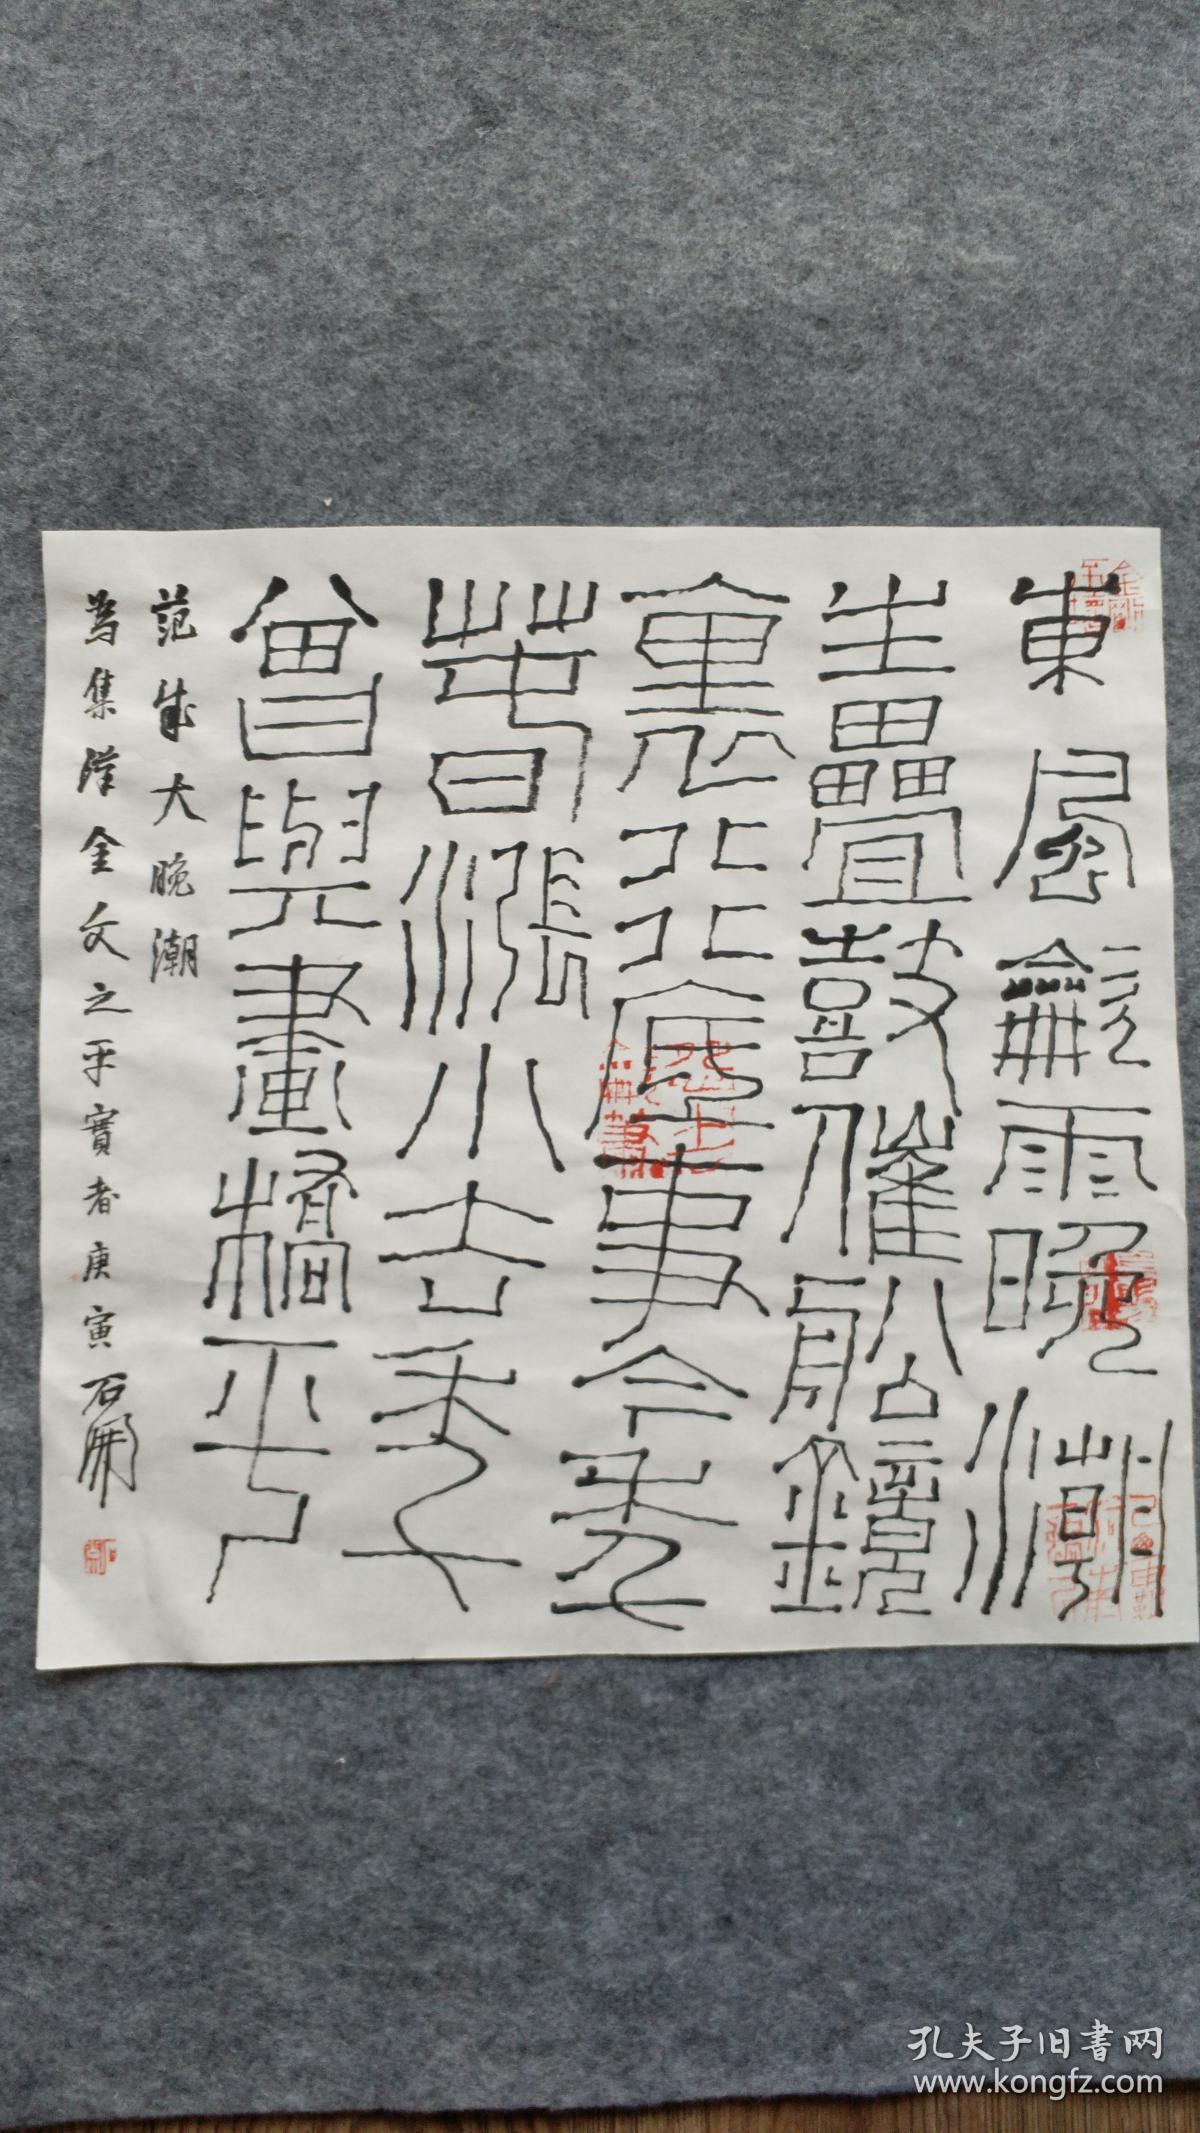 東風龡雨晚潮
生疊鼓催船鏡
裏行底事今年
萅漲小去年
曾與畫橋平
范成大晚潮
為集漢金文之平實者庚寅石開
石開
孔夫子旧書网
www.kongfz.com